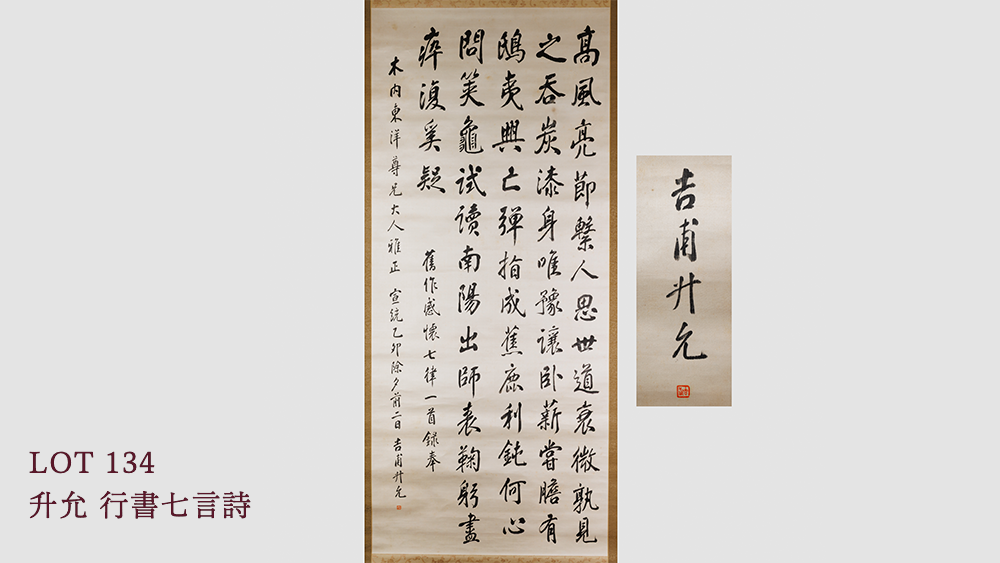 高風亮節繫人思世道衰微孰見
之吞炭漆身唯豫讓臥薪嘗膽有
鴟夷興亡彈指成蕉鹿利鈍何心
問筴龜試讀南陽出師表鞠躬盡
瘁復奚疑 舊作感懷七律一首錄奉
木內東洋尊兄大人雅正 宣統乙卯除夕前二日 吉甫升允
吉甫升允
LOT 134
升允 行書七言詩